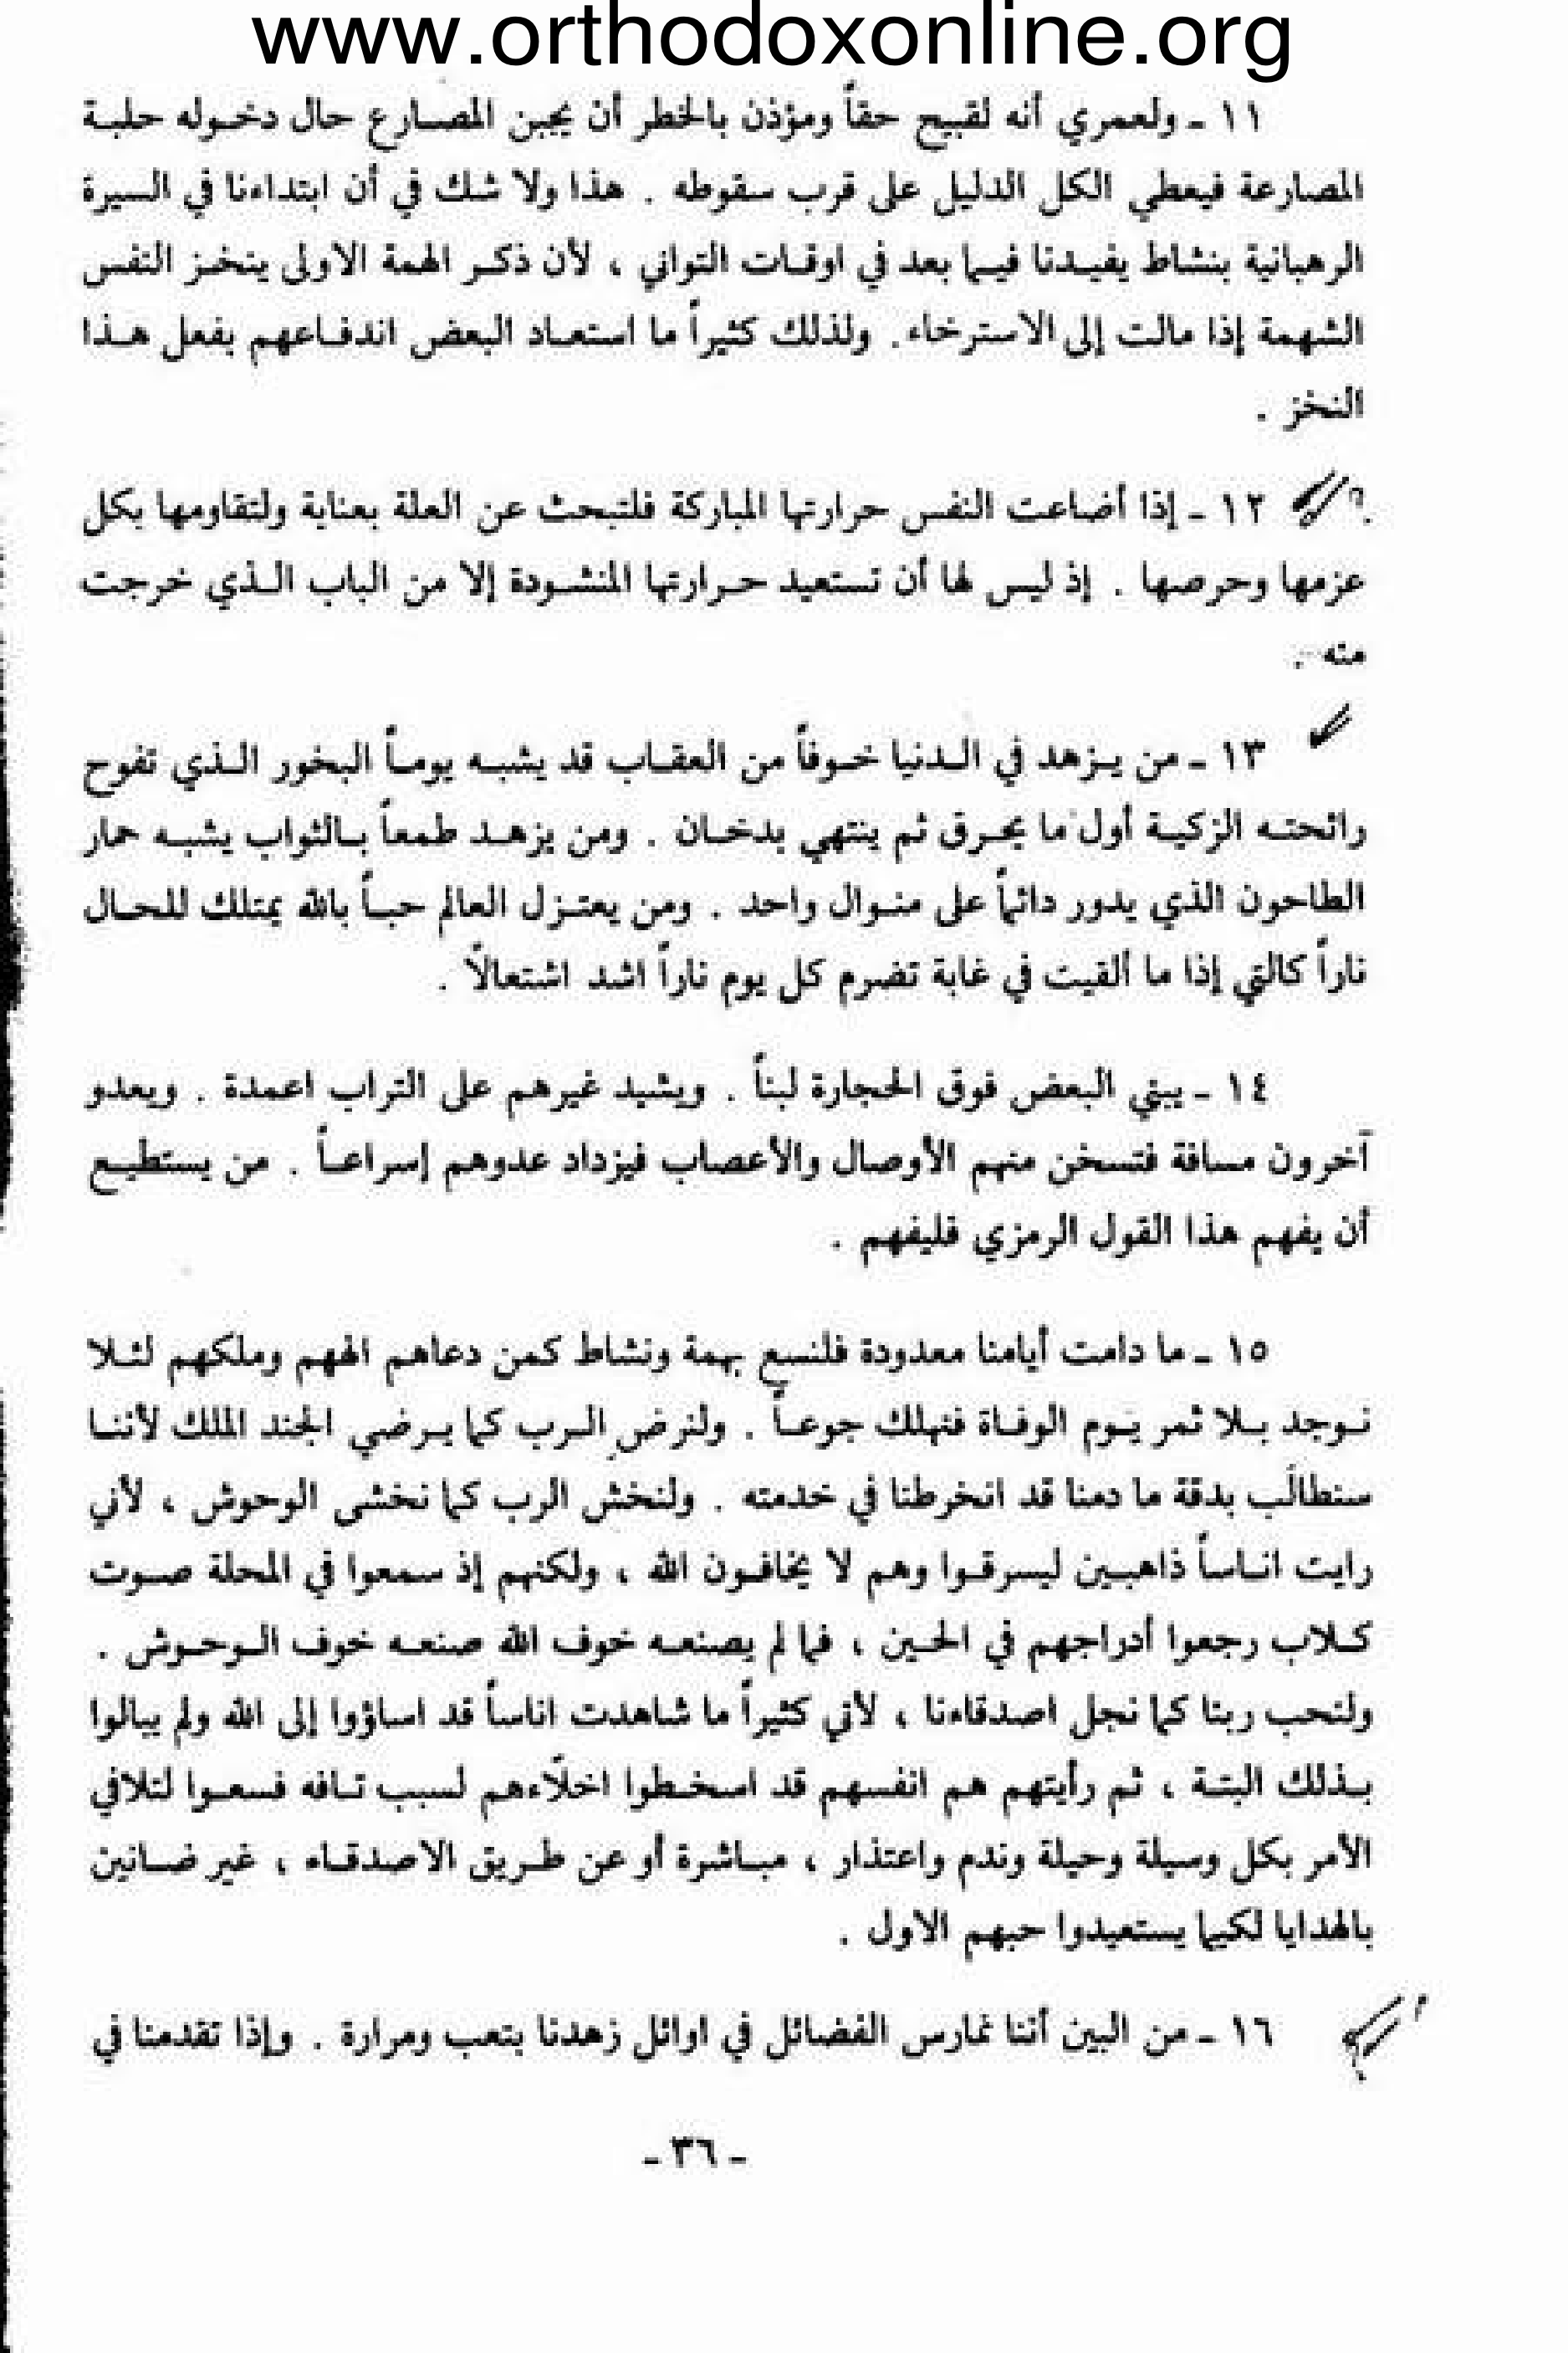 www.orthodoxonline.org
١١ - ولعمري أنه لقبيح حقاً ومؤذن بالخطر أن يجبن المصارع حال دخوله حلبة
المصارعة فيعطي الكل الدليل على قرب سقوطه . هذا ولا شك في أن ابتداءنا في السيرة
الرهبانية بنشاط يفيدنا فيما بعد في اوقات التواني ، لأن ذكر الهمة الاولى ينخز النفس
الشهمة إذا مالت إلى الاسترخاء. ولذلك كثيراً ما استعاد البعض اندفاعهم بفعل هذا
النخز .
١٢ - إذا أضاعت النفس حرارتها المباركة فلتبحث عن العلة بعناية ولتقاومها بكل
عزمها وحرصها . إذ ليس لها أن تستعيد حرارتها المنشودة إلا من الباب الذي خرجت
منه .
١٣ - من يزهد في الدنيا خوفاً من العقاب قد يشبه يوماً البخور الذي تفوح
رائحته الزكية أول ما يحرق ثم ينتهي بدخان . ومن يزهد طمعاً بالثواب يشبه حمار
الطاحون الذي يدور دائماً على منوال واحد . ومن يعتزل العالم حباً بالله يمتلك للحال
ناراً كالتي إذا ما ألقيت في غابة تضرم كل يوم ناراً اشد اشتعالاً .
١٤ - يبني البعض فوق الحجارة لبناً . ويشيد غيرهم على التراب اعمدة . ويعدو
آخرون مسافة فتسخن منهم الأوصال والأعصاب فيزداد عدوهم إسراعاً . من يستطيع
أن يفهم هذا القول الرمزي فليفهم .
١٥ - ما دامت أيامنا معدودة فلنسع بهمة ونشاط كمن دعاهم الههم وملكهم لئلا
نوجد بلا ثمر يوم الوفاة فنهلك جوعاً . ولنرضِ الرب كما يرضي الجند الملك لأننا
سنطالَب بدقة ما دمنا قد انخرطنا في خدمته . ولنخش الرب كما نخشى الوحوش ، لأني
رايت اناساً ذاهبين ليسرقوا وهم لا يخافون الله ، ولكنهم إذ سمعوا في المحلة صوت
كلاب رجعوا أدراجهم في الحين ، فما لم يصنعه خوف الله صنعه خوف الوحوش .
ولنحب ربنا كما نجل اصدقاءنا ، لأني كثيراً ما شاهدت اناساً قد اساؤوا إلى الله ولم يبالوا
بذلك البتة ، ثم رأيتهم هم انفسهم قد اسخطوا اخلّاءهم لسبب تافه فسعوا لتلافي
الأمر بكل وسيلة وحيلة وندم واعتذار ، مباشرة أو عن طريق الاصدقاء ، غير ضانين
بالهدايا لكيما يستعيدوا حبهم الاول .
١٦ - من البين أننا نمارس الفضائل في اوائل زهدنا بتعب ومرارة . وإذا تقدمنا في
- ٣٦ -